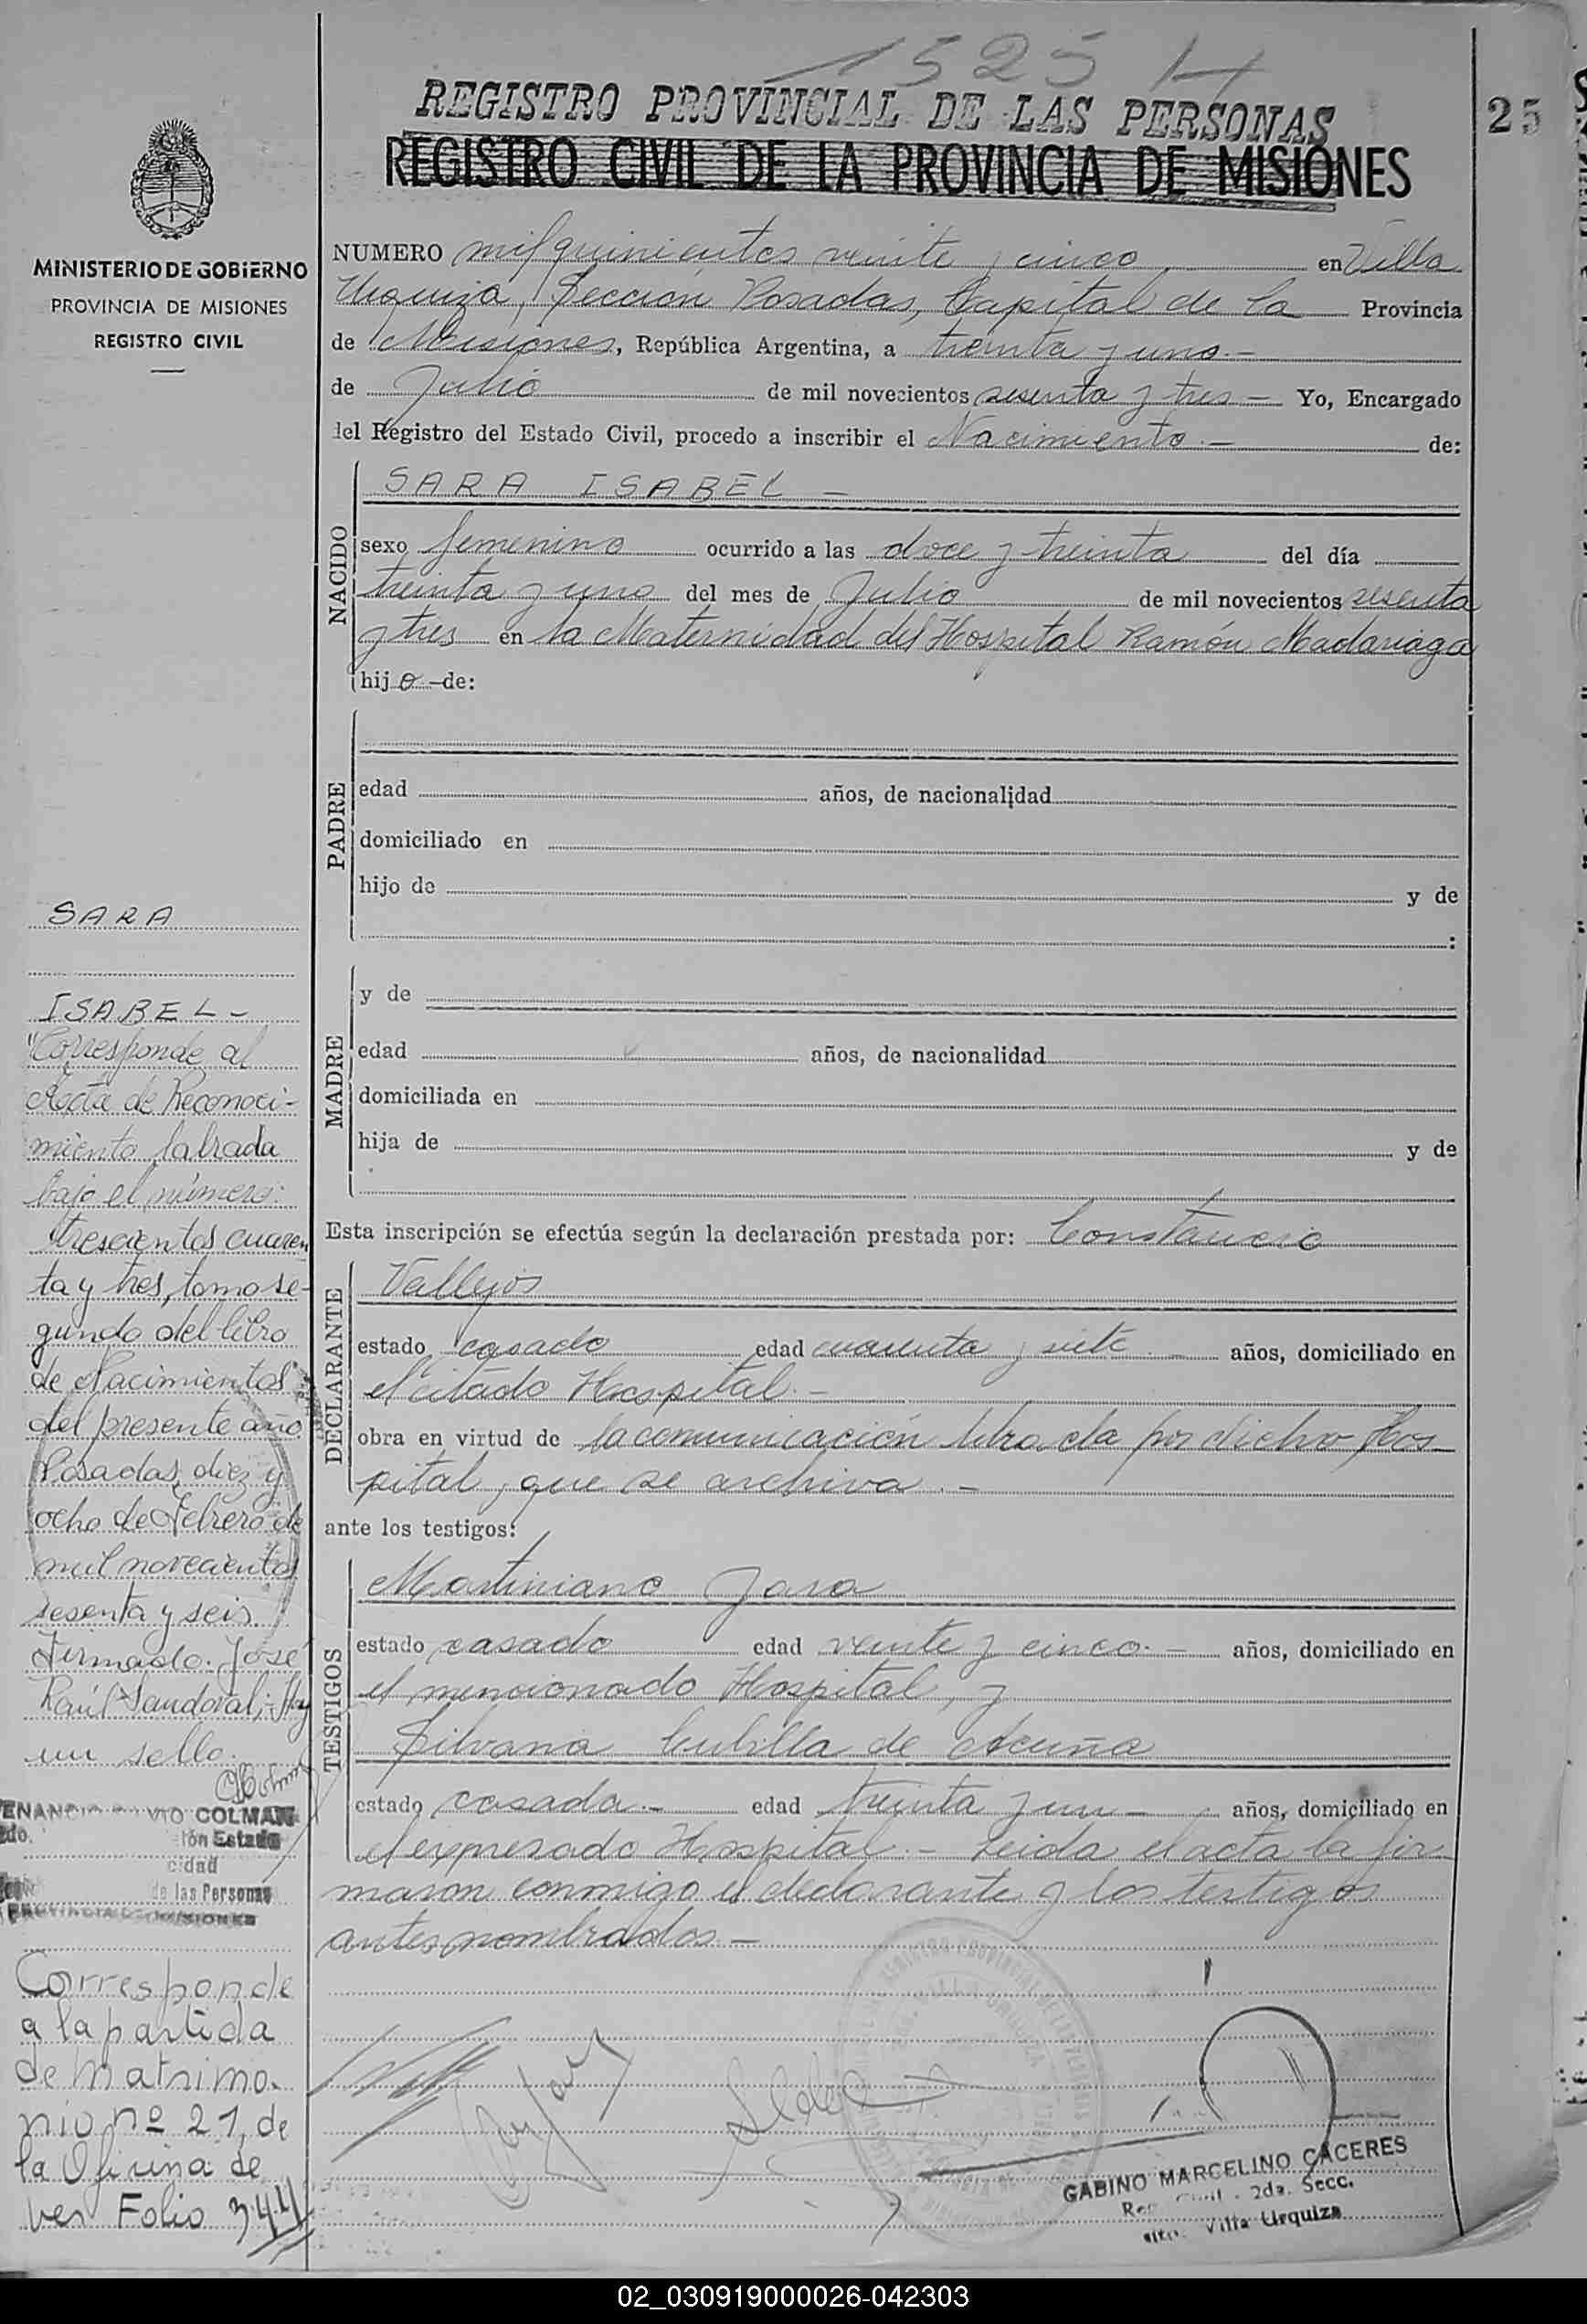 1525 H
25
REGISTRO PROVINCIAL DE LAS PERSONAS
REGISTRO CIVIL DE LA PROVINCIA DE MISIONES
MINISTERIO DE GOBIERNO
PROVINCIA DE MISIONES
REGISTRO CIVIL
NUMERO mil quinientos veinte y cinco en Villa
Urquiza, Sección Posadas, Capital de la Provincia
de Misiones, República Argentina, a treinta y uno.-
de Julio de mil novecientos sesenta y tres - Yo, Encargado
del Registro del Estado Civil, procedo a inscribir el Nacimiento.- de:
NACIDO
SARA ISABEL -
sexo femenino ocurrido a las doce y treinta del día
treinta y uno del mes de Julio de mil novecientos sesenta
y tres en la Maternidad del Hospital Ramón Madariaga
hij o - de:
PADRE
edad años, de nacionalidad
domiciliado en
hijo de y de
:
MADRE
y de
edad años, de nacionalidad
domiciliada en
hija de y de
Esta inscripción se efectúa según la declaración prestada por: Constancio
DECLARANTE
Vallejos
estado casado edad cuarenta y siete .- años, domiciliado en
el citado Hospital.-
obra en virtud de la comunicación librada por dicho Hos-
pital, que se archiva.-
ante los testigos:
TESTIGOS
Martiniano Jara
estado casado edad veinte y cinco.- años, domiciliado en
el mencionado Hospital, y
Silvana Cubilla de Acuña
estado casada.- edad treinta y un - años, domiciliado en
el expresado Hospital.- Leida el acta la fir-
maron conmigo el declarante y los testigos
antes nombrados.-
GABINO MARCELINO CACERES
2da. Secc.
Villa Urquiza
SARA
ISABEL -
"Corresponde al
Acta de Reconoci-
miento labrada
bajo el número:
trescientos cuaren
ta y tres, tomo se-
gundo del libro
de Nacimientos
del presente año
Posadas, diez y
ocho de Febrero de
mil novecientos
sesenta y seis.
Firmado: José
Raúl Sandoval; Hay
un sello.
COLMAN
Estado
cidad
de las Personas
PROVINCIA DE MISIONES
Corresponde
a la partida
de matrimo-
nio nº 21, de
la Oficina de
ver Folio 344
02_030919000026-042303